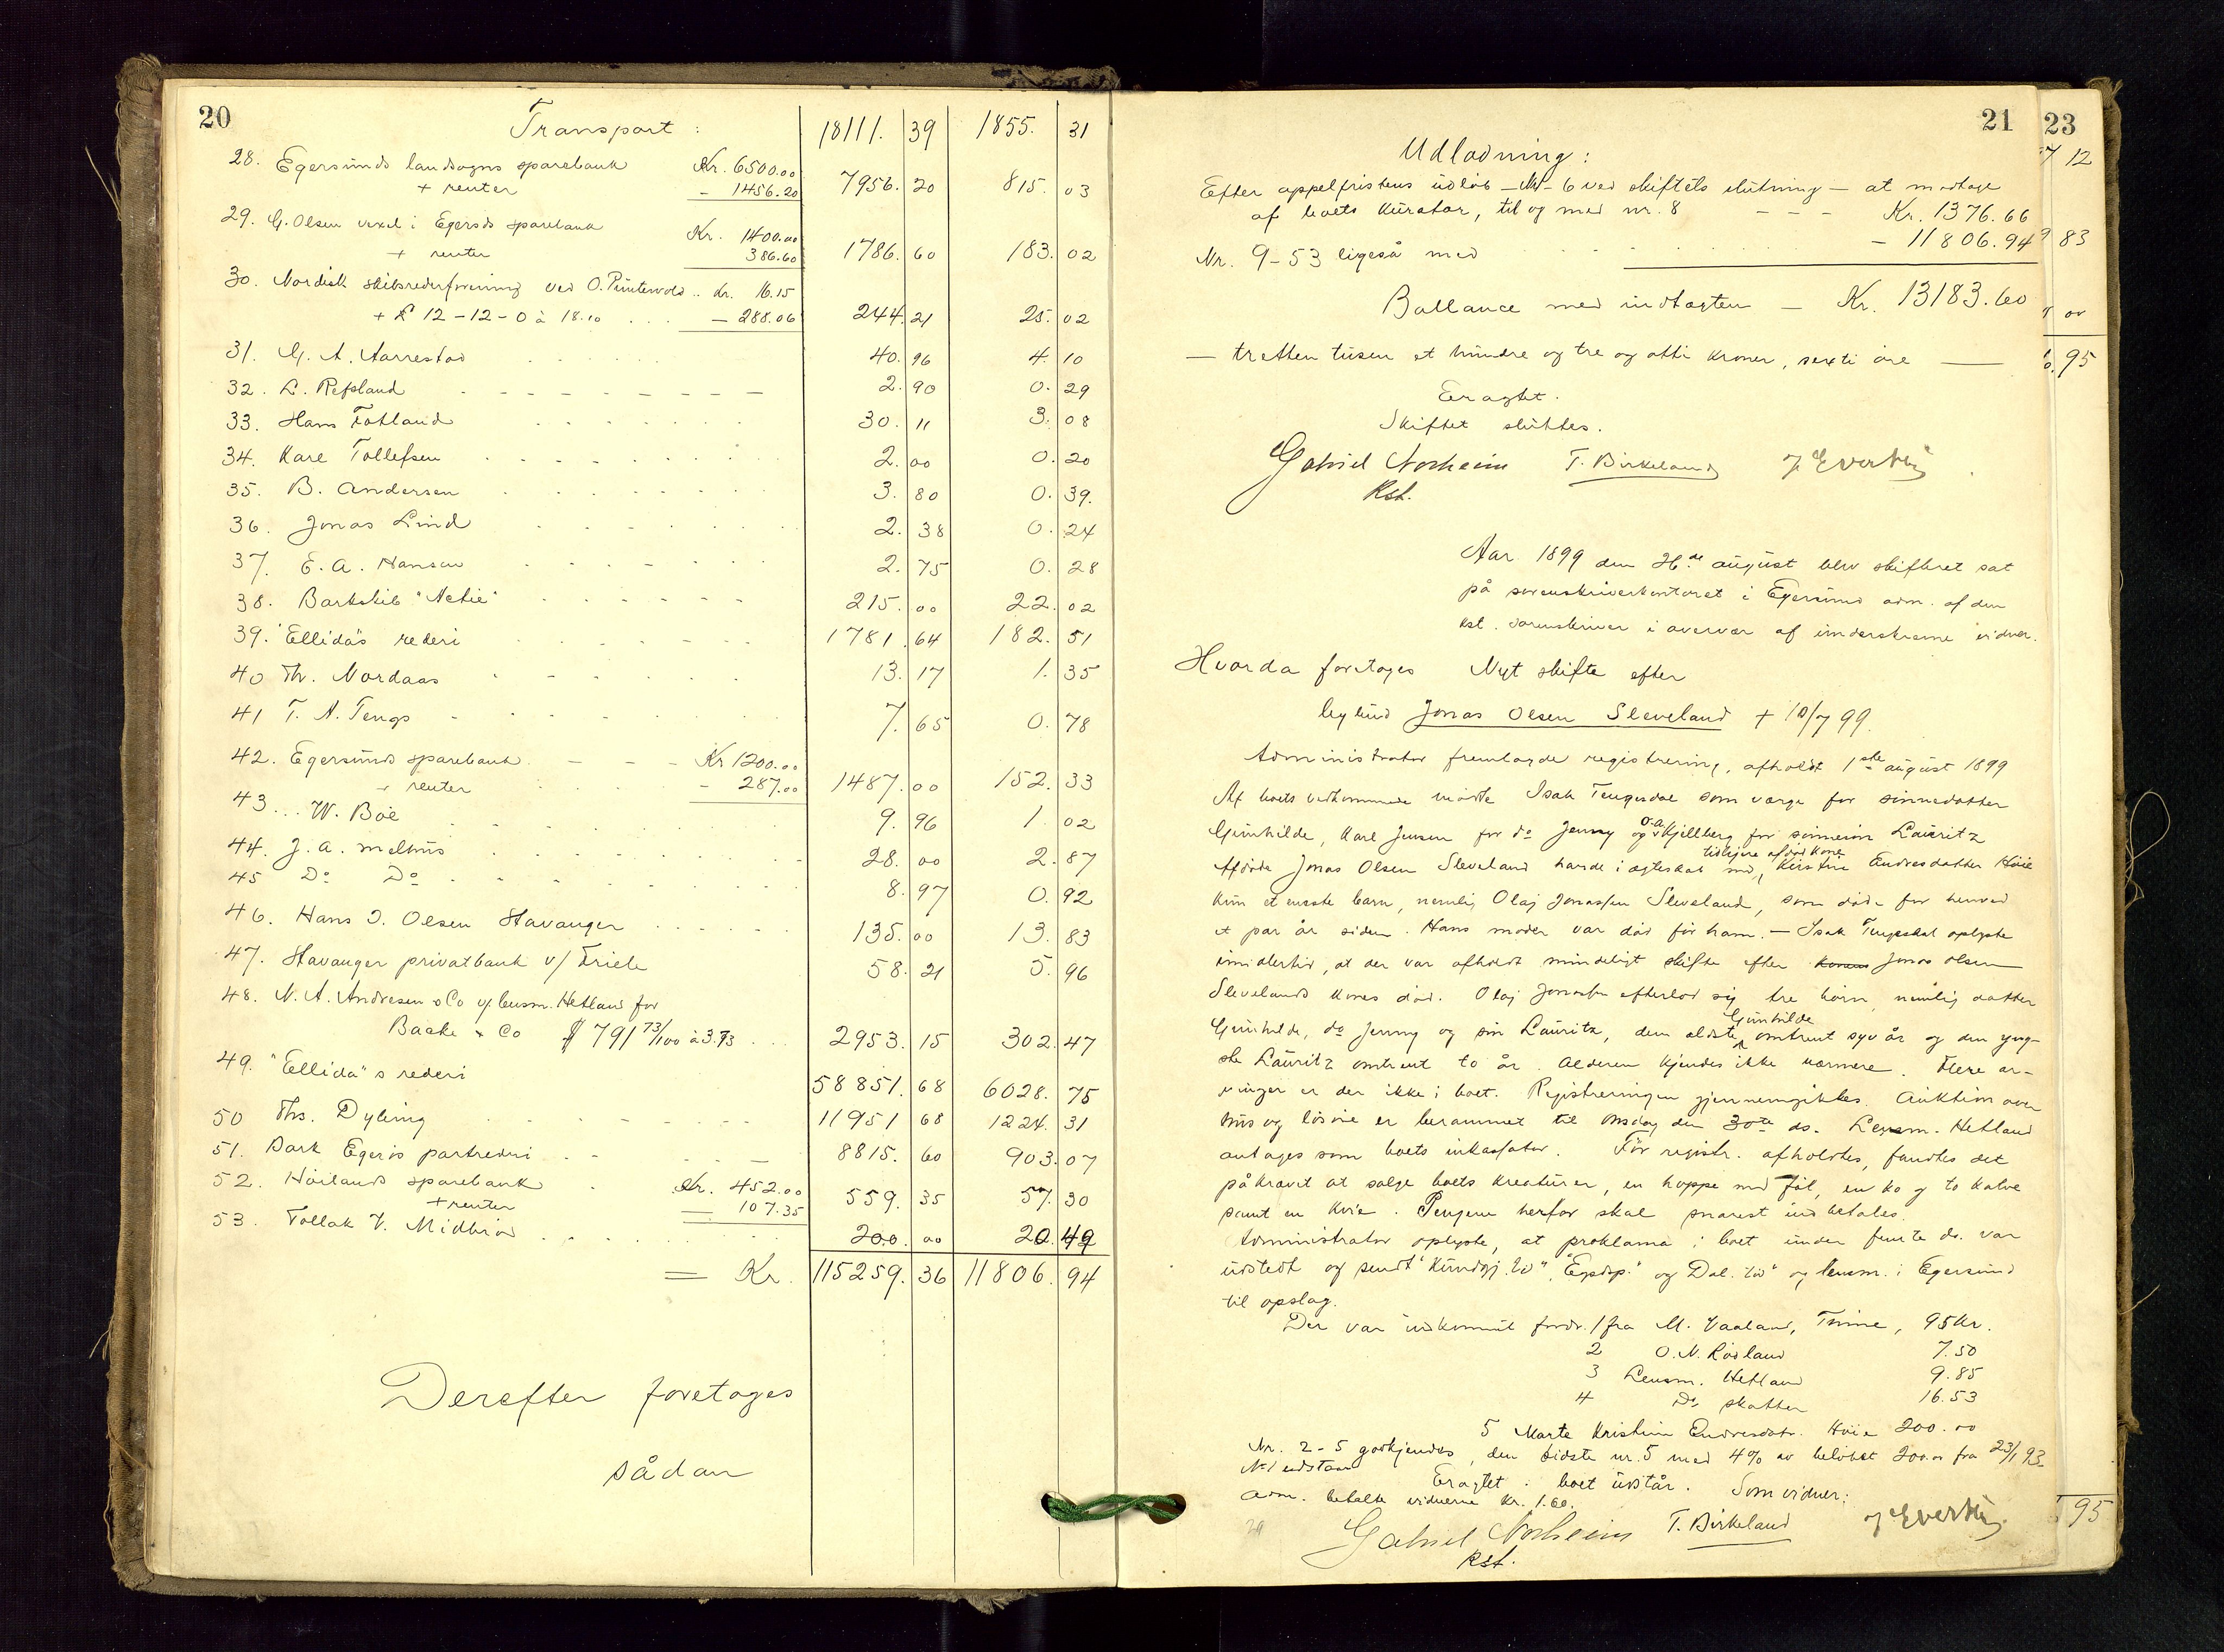 20
Transport:
18111. 39 1855. 31
28. Egersunds landsogns sparebank Kr. 6500.00
+ renter - 1456.20 7956. 20 815. 03
29. G. Olsen vexel i Egersds sparebank Kr. 1400.00
+ renter 386.60 1786. 60 183. 02
30. Nordisk skibsrederforening ved O. Puntervold .. Kr. 16.15
+ £ 12-12-0 à 18.10 ... - 288.06 244. 21 25. 02
31. G. A. Aarrestad 40. 96 4. 10
32. L. Refsland 2. 90 0. 29
33. Hans Fotland 30. 11 3. 08
34. Karl Tollefsen 2. 00 0. 20
35. B. Andersen 3. 80 0. 39.
36. Jonas Lind 2. 38 0. 24
37. E. A. Hansen 2. 75 0. 28
38. Barkskib "Aetie" 215. 00 22. 02
39. "Ellida's rederi 1781. 64 182. 51
40 Th. Nordaas 13. 17 1. 35
41 T. A. Tengs 7. 65 0. 78
42. Egersunds sparebank - - - Kr 1200.00
+ renter - 287.00 1487. 00 152. 33
43 ... W. Böe 9. 96 1. 02
44. J. A. Melhus 28. 00 2. 87
45 Do Do 8. 97 0. 92
46. Hans J. Olsen Stavanger 135. 00 13. 83
47. Stavanger privatbank v/ Friele 58. 21 5. 96
48. N. A. Andresen & Co v/ lensm. Hetland for
Backe & Co $ 791 73/100 à 3.73 ... 2953. 15 302. 47
49. "Ellida"s rederi 58851. 68 6028. 75
50 Ths. Dyling 11951 68 1224. 31
51. Bark Egerös partrederi 8815. 60 903. 07
52. Höilands sparebank Kr. 452.00
+ renter 107.35 559. 35 57. 30
53. Tollak V. Midbröd 200. 00 20. 49
= Kr. 115259. 36 11806. 94
Derefter foretoges
sådan
21
Udlodning:
Efter appelfristens udløb - Nr - 6 ved skiftets slutning - at modtage
af boets kurator, til og med nr. 8 - - - Kr. 1376.66
Nr. 9-53 ligeså med - 11806.94
Ballance med indtægten - Kr. 13183.60
- tretten tusen et hundre og tre og otti kroner, sexti øre -
Eragtet.
Skiftet sluttes.
Gabriel Norheim T. Birkeland
Kst.
Aar 1899 den 26de august blev skifteret sat
på sorenskriverkontoret i Egersund adm. af den
kst. sorenskriver i overvær af underskrevne vidner.
Hvorda foretoges Nyt skifte efter
Jonas Olsen Sleveland + 10/7 99.
Administrator fremlagde registrering, afholdt 1ste august 1899
Af boets vedkommende mødte Isak Tengesdal som værge for sønnedatter
Gunhilde, Karl Jensen for do Jenny og O. A. Kjellberg for sønnesøn Lauritz
Afdøde Jonas Olsen Sleveland havde i ægteskab med, tidligere afdød kone Kirstine Endresdatter Höie
kun et eneste barn, nemlig Olaj Jonassen Sleveland, som døde for henved
et par år siden. Hans moder var død før ham. - Isak Tengesdal oplyste
imidlertid, at der var afholdt mindeligt skifte efter Konens Jonas Olsen
Slevelands kones død. Olaj Jonassen efterlod sig tre børn, nemlig datter
Gunhilde, do Jenny og søn Lauritz, den eldste Gunhilde omtrent syv år og den yng-
ste Lauritz omtrent to år. Alderen kjendes ikke nærmere. Flere ar-
vinger er der ikke i boet. Registreringen gjennemgikkes. Auktion over
hus og løsøre er berammet til onsdag den 30te ds. Lensm. Hetland
antages som boets inkassator. Før registr. afholdtes, fandtes det
påkrævet at sælge boets kreaturer, en hoppe med føl, en ko og to kalve
samt en kvie. Pengene herfor skal snarest indbetales.
Administrator oplyste, at proklama i boet under femte ds. var
udstedt og sendt "Kundgj. td", "Egdsp." og Dal. td" og lensm. i Egersund
til opslag.
Der var indkommet fordr. 1 fra M. Vaaland, Time, 95 kr.
2 O. N. Rödland 7.50
3 Lensm. Hetland 9.85
4 Do skatter 16.53
5 Marte Kristine Endresdatr. Höie 200.00
Nr. 2-5 godkjendes, den sidste nr. 5 med 4% av beløbet 200.00 fra 23/1 93
No 1 udstaar Eragtet: boet udstår. Som vidner:
Adm. betalte vidnerne kr. 1.60.
Gabriel Norheim T. Birkeland
Kst.
23
7 12
9 83
00
6. 95
95